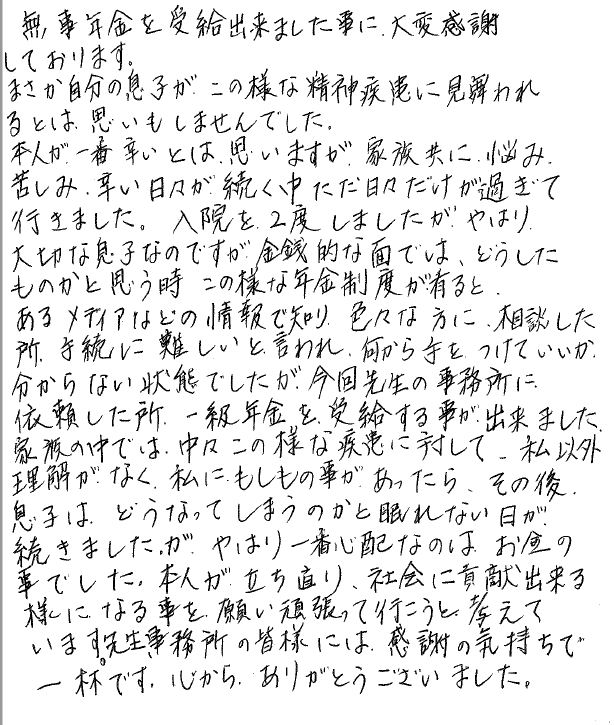 無事年金を受給出来ました事に、大変感謝
しております。
まさか自分の息子が、この様な精神疾患に見舞われ
るとは、思いもしませんでした。
本人が、一番辛いとは、思いますが、家族共に、悩み、
苦しみ、辛い日々が、続く中ただ日々だけが過ぎて
行きました。入院を、2度しましたが、やはり、
大切な息子なのですが、金銭的な面では、どうした
ものかと思う時、この様な年金制度が有ると、
あるメディアなどの情報で知り、色々な方に、相談した
所、手続に難しいと言われ、何から手を、つけていいか、
分からない状態でしたが、今回先生の事務所に、
依頼した所、一級年金を、受給する事が、出来ました。
家族の中では、中々この様な疾患に対して、私以外
理解がなく、私に、もしもの事が、あったら、その後、
息子は、どうなってしまうのかと眠れない日が、
続きました。が、やはり一番心配なのは、お金の
事でした。本人が、立ち直り、社会に貢献出来る
様に、なる事を、願い頑張って行こうと、考えて
います。先生事務所の皆様には、感謝の気持ちで
一杯です。心から、ありがとうございました。